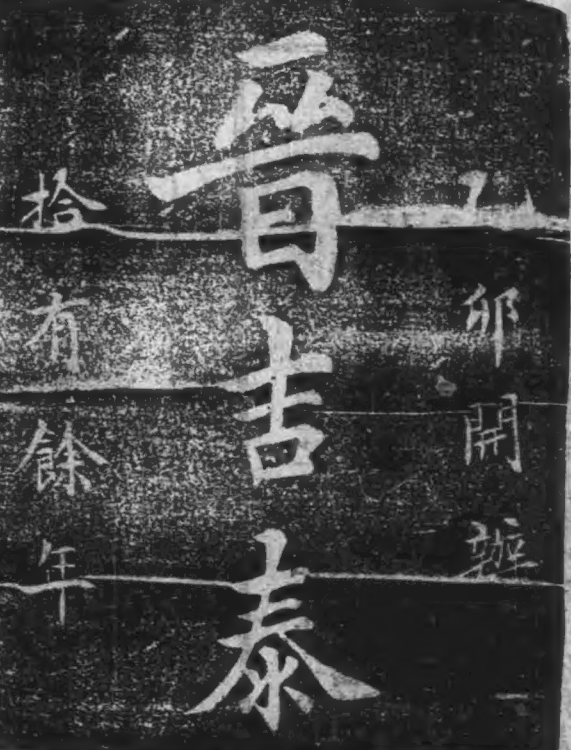 卯開辦
晉吉泰
拾有餘年